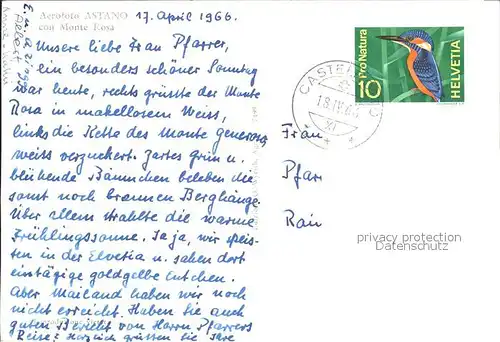 Aerofoto ASTANO
con Monte Rosa
17. April 1966.
Unsere liebe Frau Pfarrer,
ein besonders schöner Sonntag
war heute, rechts grüsste der Monte
Rosa in makellosem Weiss,
links die Kette des Monte Generoso
weiss verzuckert. Zartes Grün u.
blühende Bäumchen beleben die
sonst noch braunen Berghänge.
Über allem strahlte die warme
Frühlingssonne. Ja ja, wir speis-
ten in der Elvetia u. sahen dort
eintägige goldgelbe Entchen.
Aber Mailand haben wir noch
nicht erreicht. Haben Sie auch
guten Bericht von Herrn Pfarrers
Reise? Herzlich grüssen Sie Ihre
Albert
CASTEL
18.IV.6
XI
10 Pro Natura
HELVETIA
Frau
Pfar
Rain
privacy protection
Datenschutz